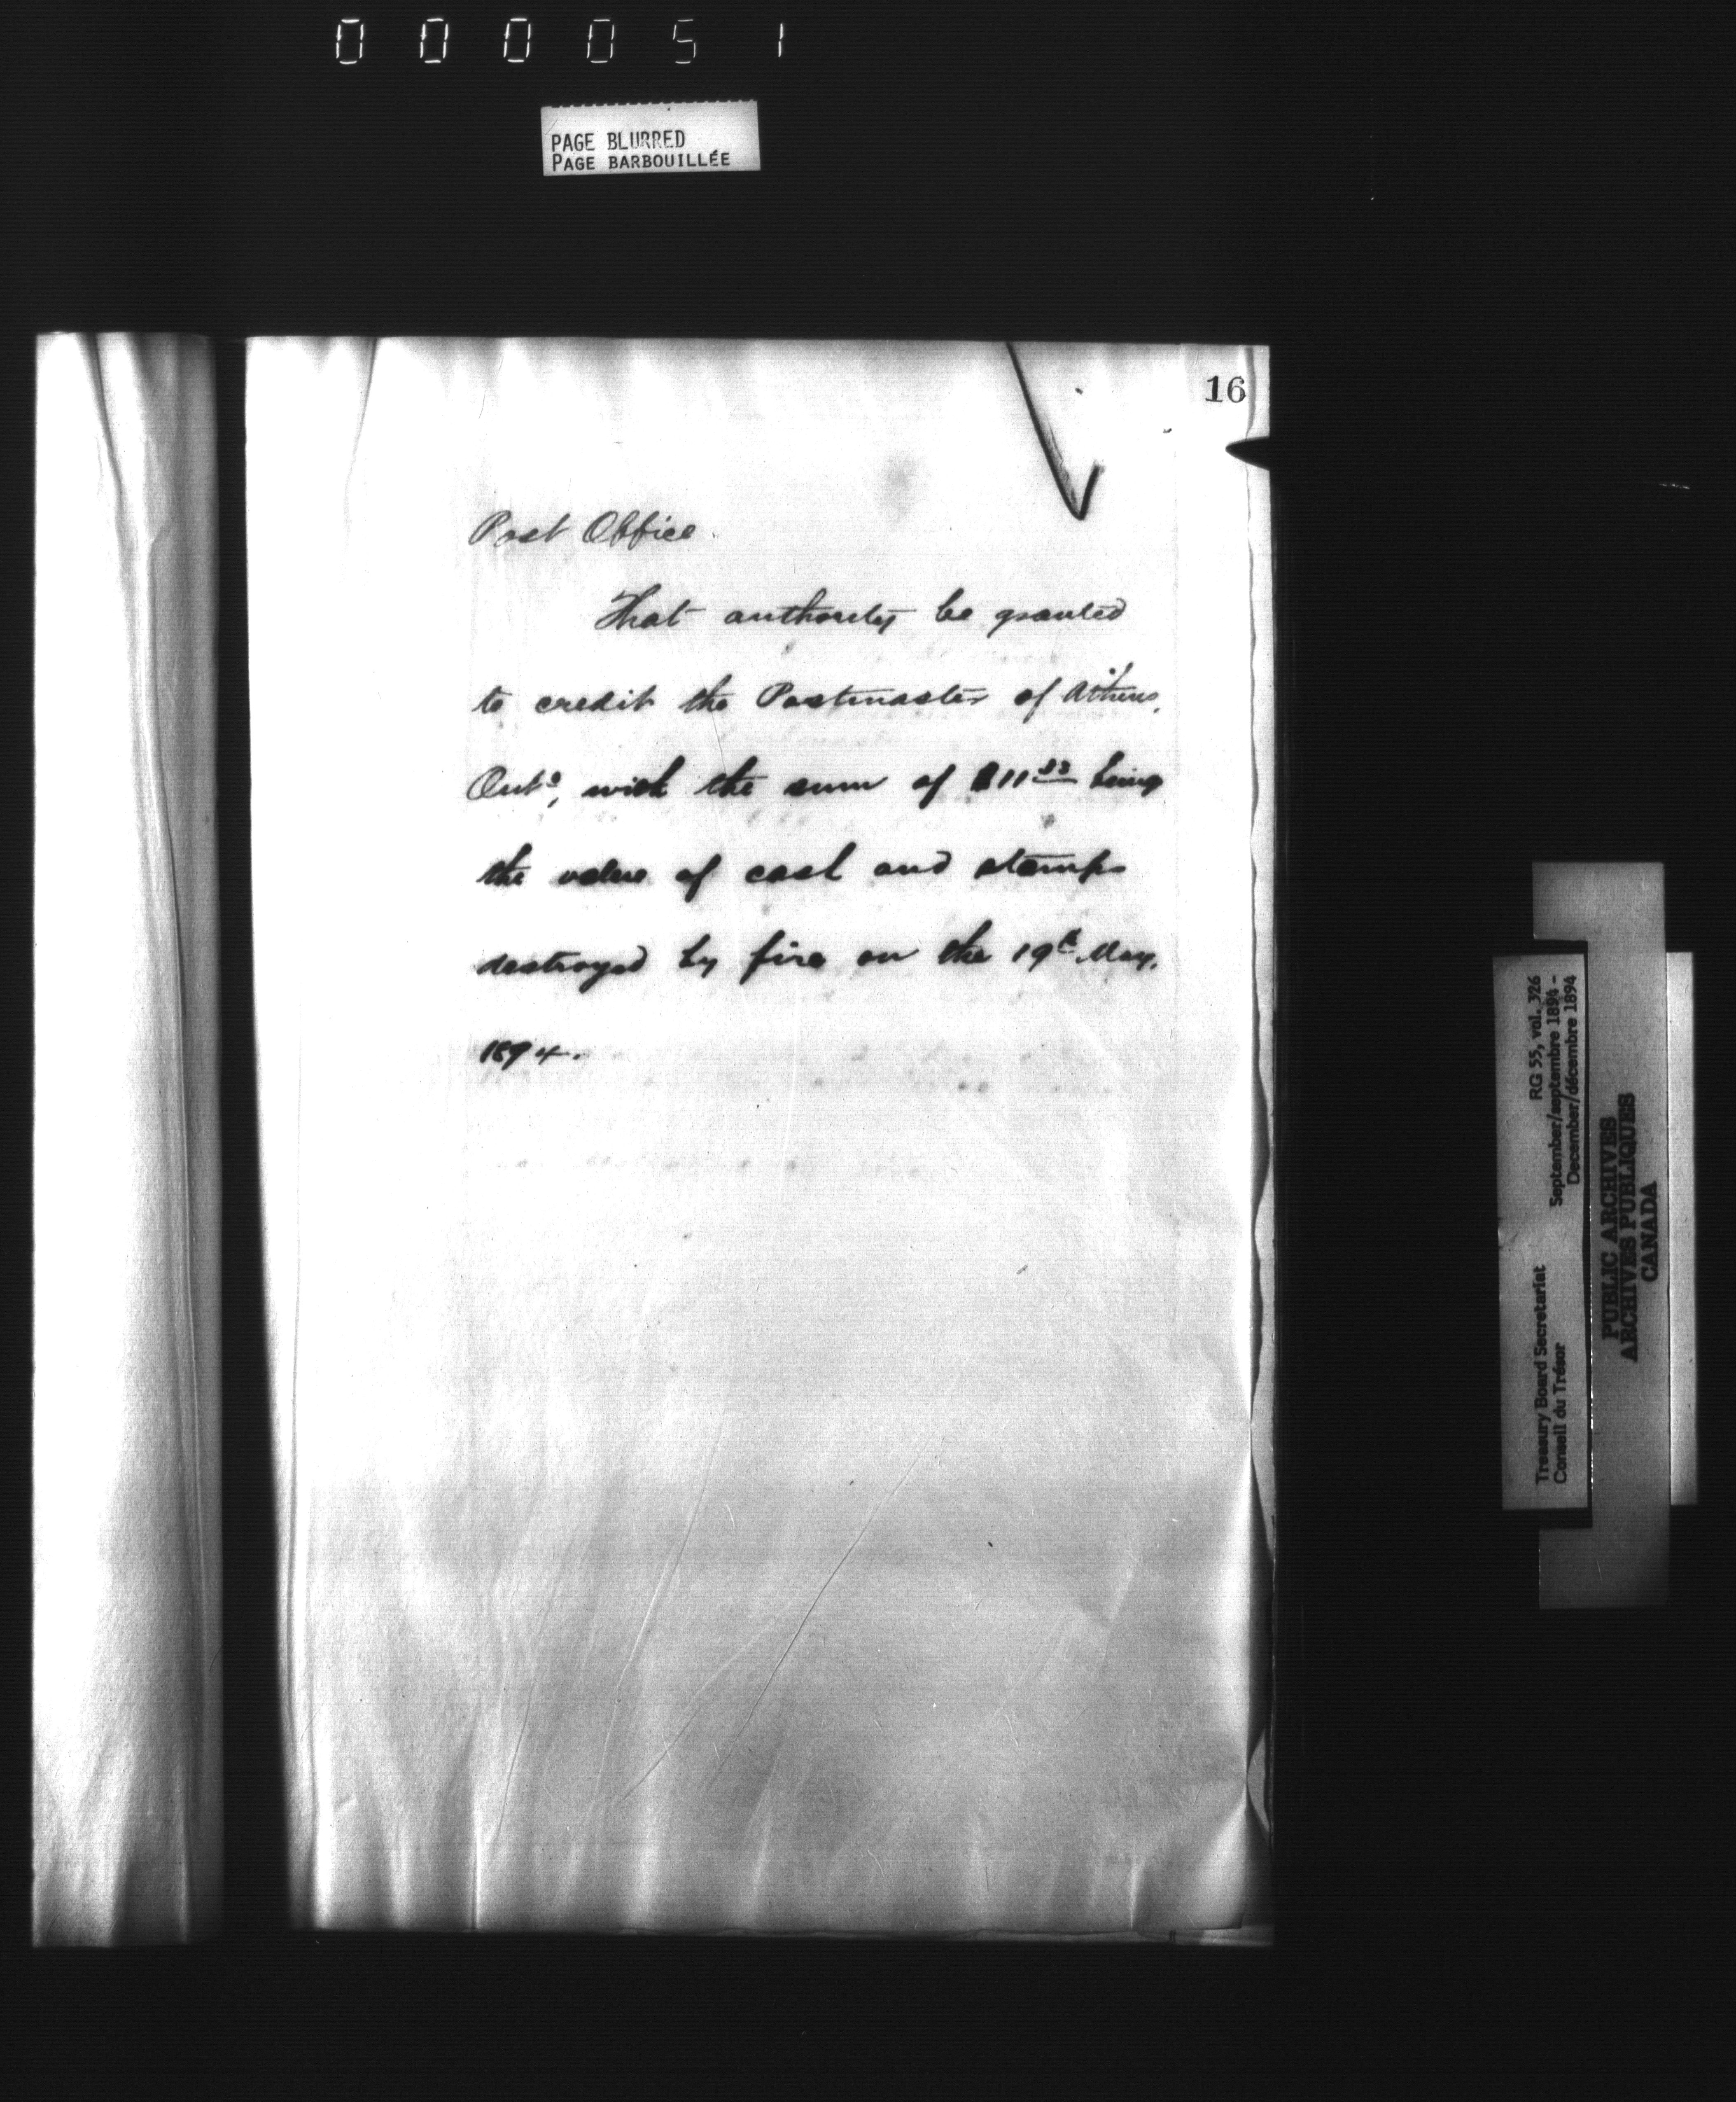 000051
PAGE BLURRED
PAGE BARBOUILLÉE
16
Post Office.
That authority be granted
to credit the Postmaster of Athens,
Onto, with the sum of $11 being
the value of cash and stamps
destroyed by fire on the 19th May,
1894.
Treasury Board Secretariat RG 55, vol. 326
Conseil du Trésor September/septembre 1894 -
December/décembre 1894
PUBLIC ARCHIVES
ARCHIVES PUBLIQUES
CANADA